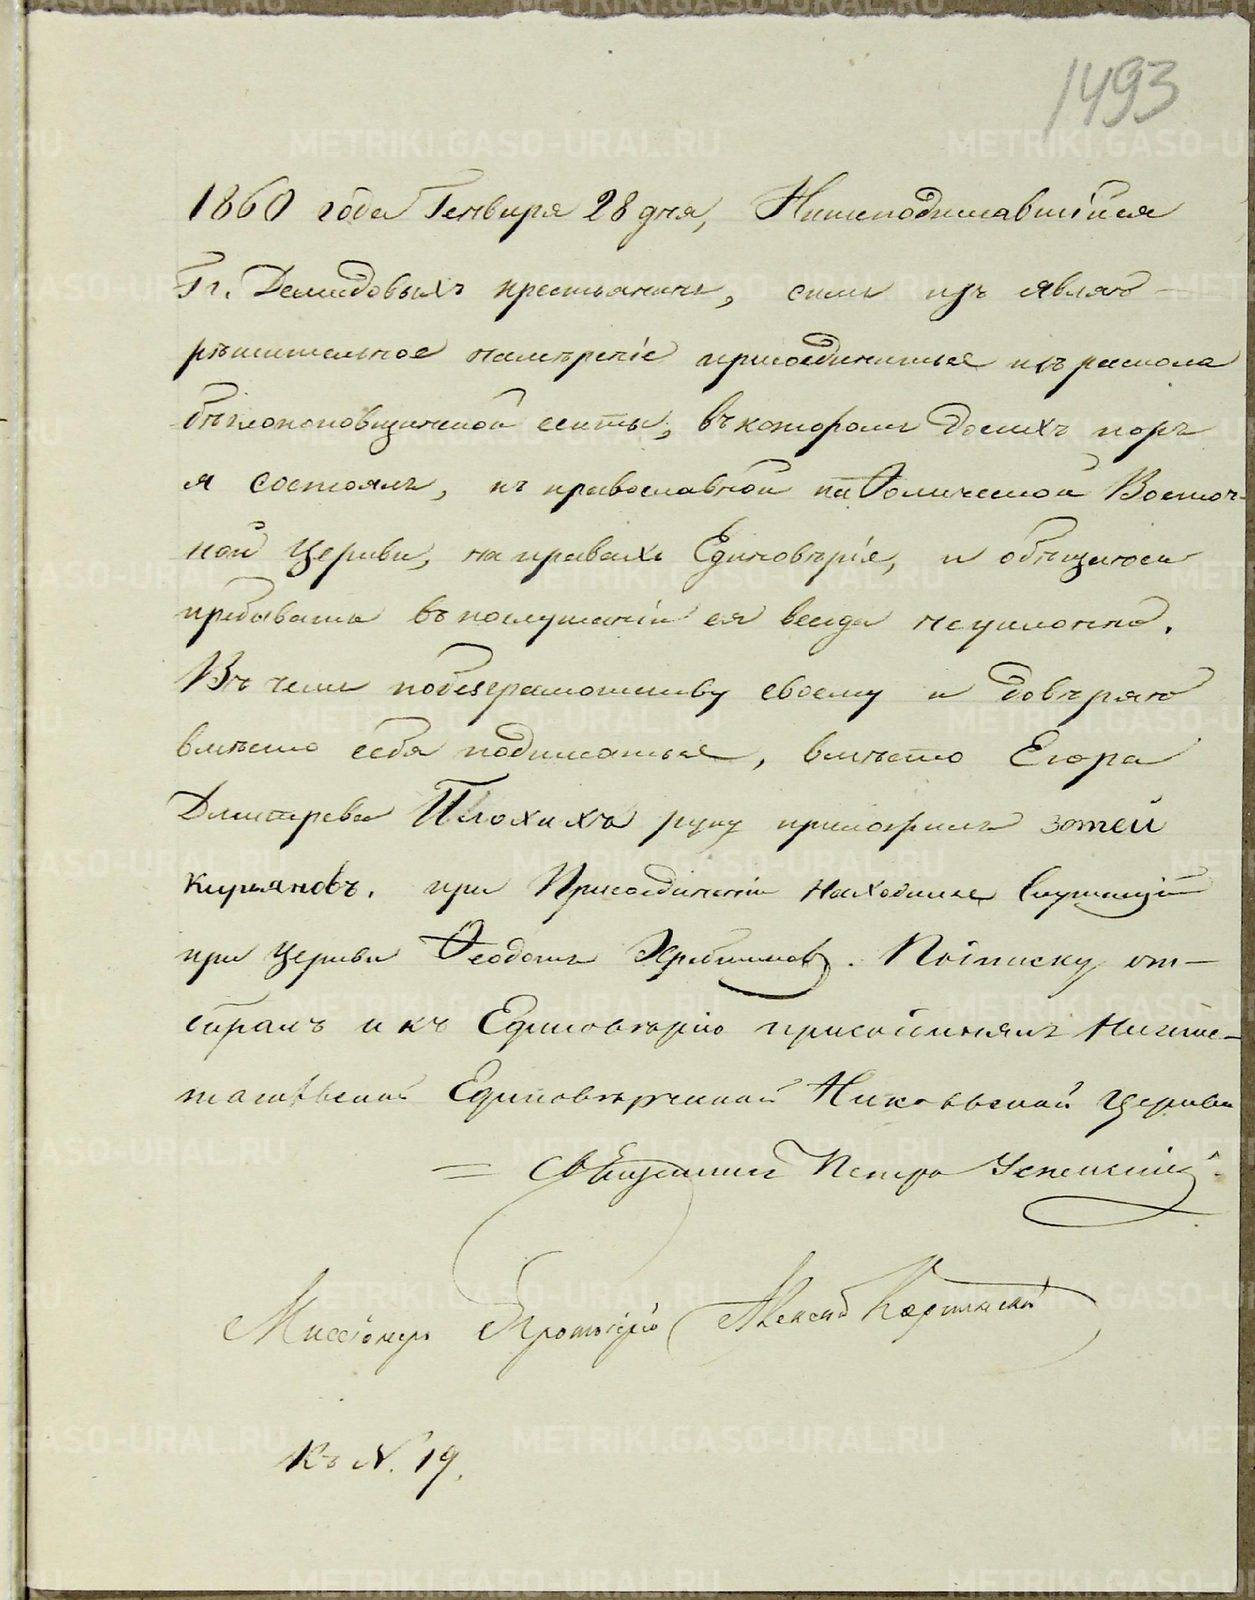 1493
1860 года Генваря 28 дня, Нижеподписавшійся
Гг. Демидовыхъ крестьянинъ, симъ изъявляю
рѣшительное намѣреніе присоединиться изъ раскола
бѣглопоповщинской секты, въ которомъ до сихъ поръ
я состоялъ, къ православной каѳолической Восточ-
ной Церкви, на правахъ Единовѣрія, и обѣщаюсь
пребывать въ послушаніи ея всегда неуклонно.
Въ чемъ по безграмотству своему и довѣряю
вмѣсто себя подписаться, вмѣсто Егора
Дмитрева Плохихъ руку приложилъ зотей
Кирьяновъ. при Присоединеніи находился Служащій
при Церкви Ѳеодоръ. Потписку от-
биралъ и къ Единовѣрію присоединялъ Нижне-
тагильской Единовѣрческой Николаевской Церкви
= Священникъ Петръ Успенскій.
Миссіонеръ Протоіерей
Къ N. 19.
METRIKI.GASO-URAL.RU